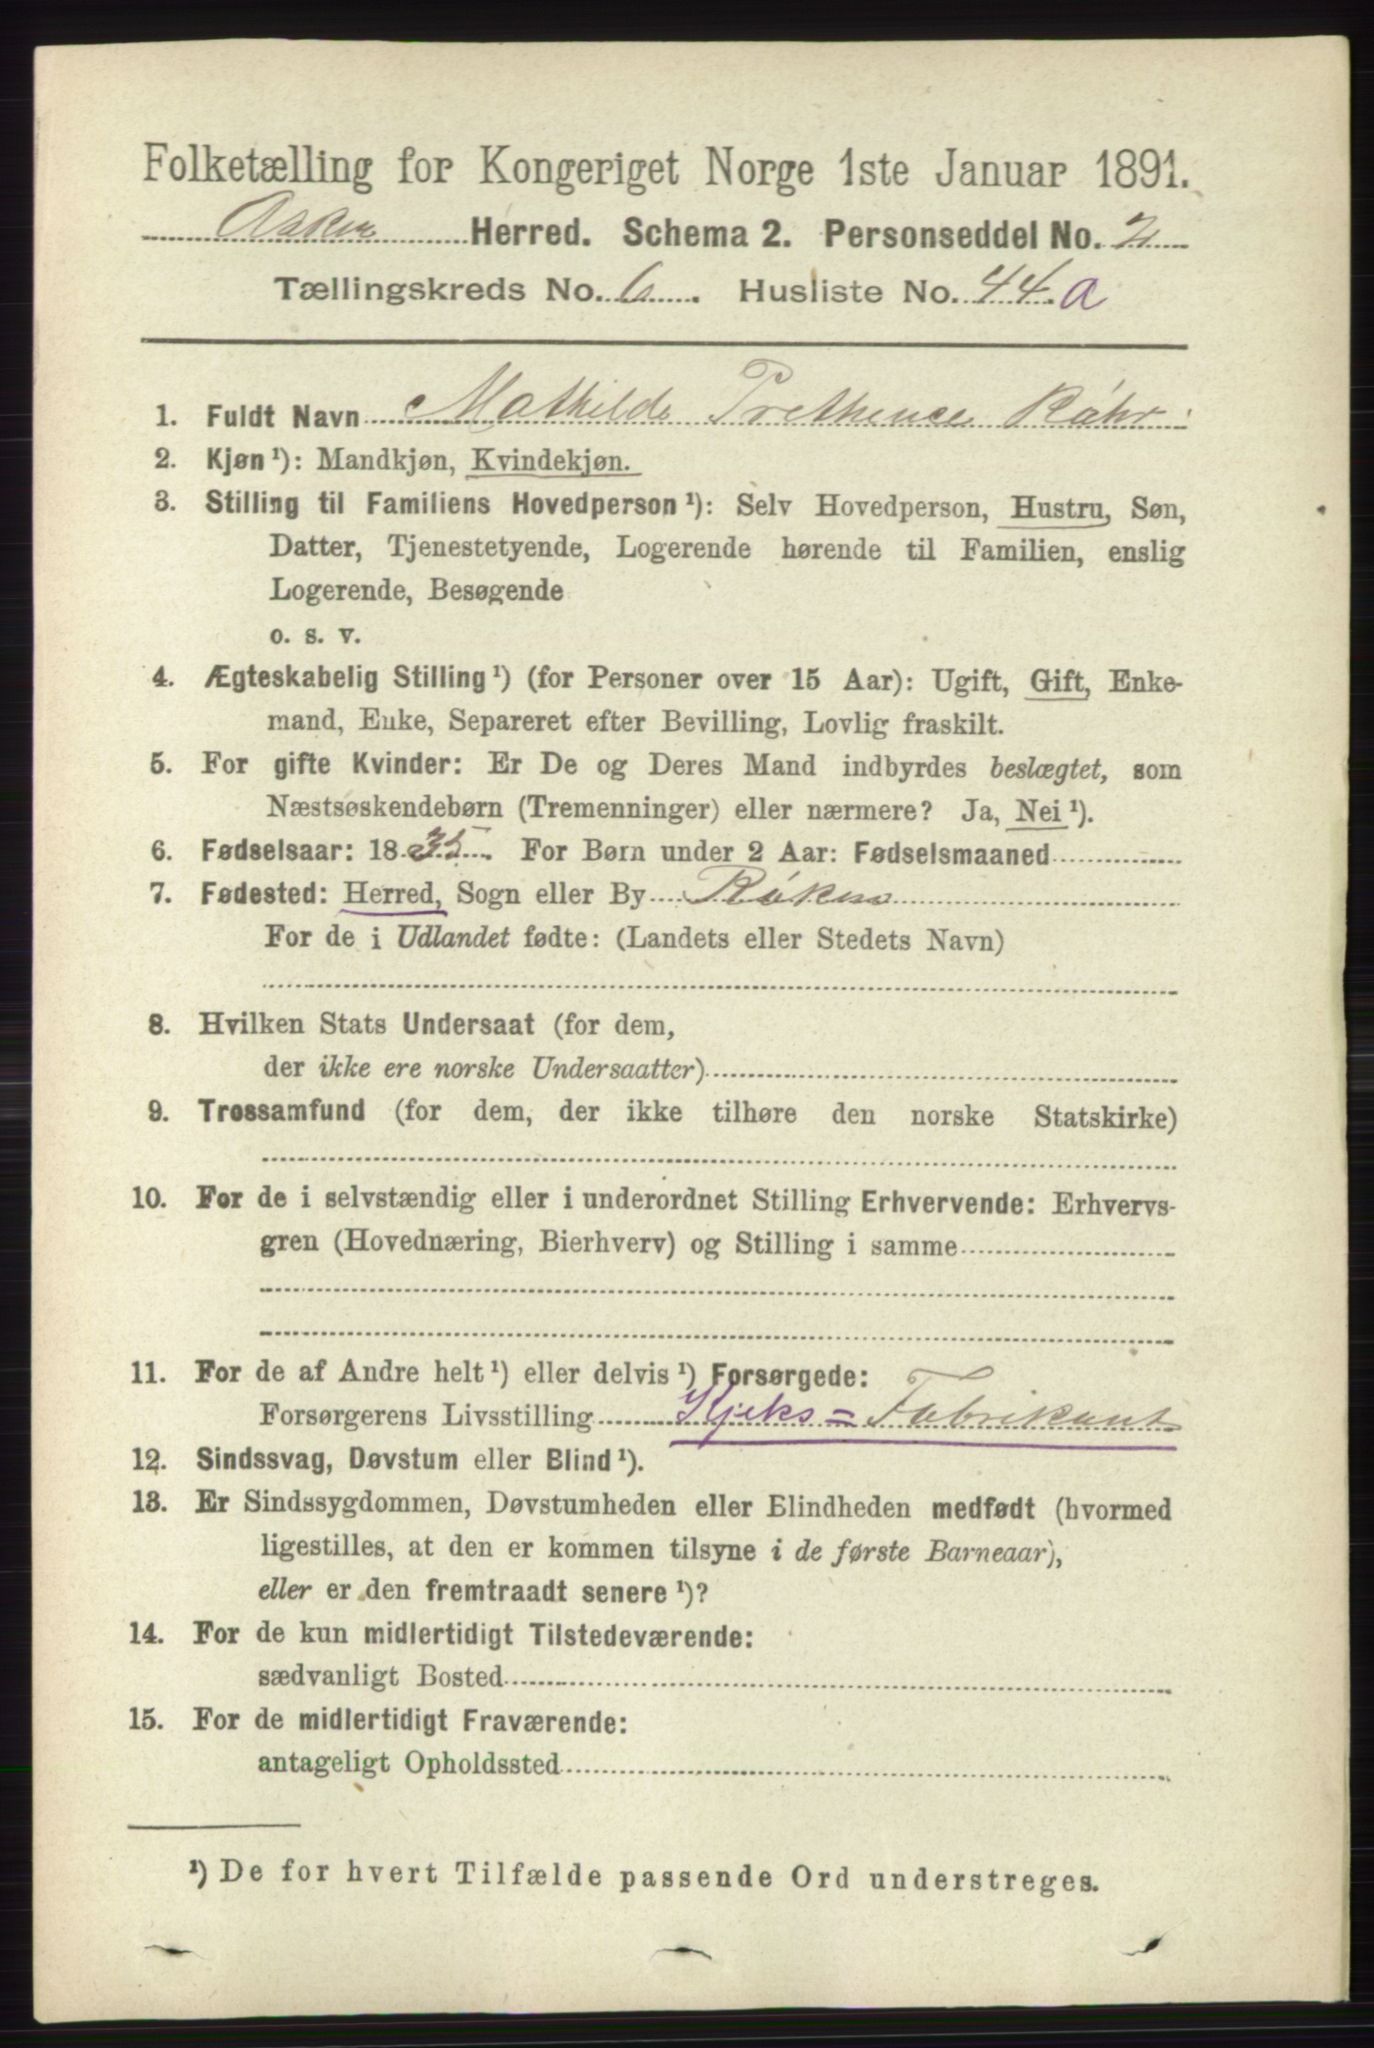 Folketælling for Kongeriget Norge 1ste Januar 1891.
Asker Herred. Schema 2. Personseddel No. 2
Tællingskreds No. 6. Husliste No. 44 a
1. Fuldt Navn Mathilde Røhr
2. Kjøn¹): Mandkjøn, Kvindekjøn.
3. Stilling til Familiens Hovedperson¹): Selv Hovedperson, Hustru, Søn,
Datter, Tjenestetyende, Logerende hørende til Familien, enslig
Logerende, Besøgende
o. s. v.
4. Ægteskabelig Stilling¹) (for Personer over 15 Aar): Ugift, Gift, Enke-
mand, Enke, Separeret efter Bevilling, Lovlig fraskilt.
5. For gifte Kvinder: Er De og Deres Mand indbyrdes beslægtet, som
Næstsøskendebørn (Tremenninger) eller nærmere? Ja, Nei¹).
6. Fødselsaar: 1835. For Børn under 2 Aar: Fødselsmaaned
7. Fødested: Herred, Sogn eller By Røken
For de i Udlandet fødte: (Landets eller Stedets Navn)
8. Hvilken Stats Undersaat (for dem,
der ikke ere norske Undersaatter)
9. Trossamfund (for dem, der ikke tilhøre den norske Statskirke)
10. For de i selvstændig eller i underordnet Stilling Erhvervende: Erhvervs-
gren (Hovednæring, Bierhverv) og Stilling i samme
11. For de af Andre helt¹) eller delvis¹) Forsørgede:
Forsørgerens Livsstilling Kjeks=Fabrikant
12. Sindssvag, Døvstum eller Blind¹).
13. Er Sindssygdommen, Døvstumheden eller Blindheden medfødt (hvormed
ligestilles, at den er kommen tilsyne i de første Barneaar),
eller er den fremtraadt senere¹)?
14. For de kun midlertidigt Tilstedeværende:
sædvanligt Bosted
15. For de midlertidigt Fraværende:
antageligt Opholdssted
¹) De for hvert Tilfælde passende Ord understreges.